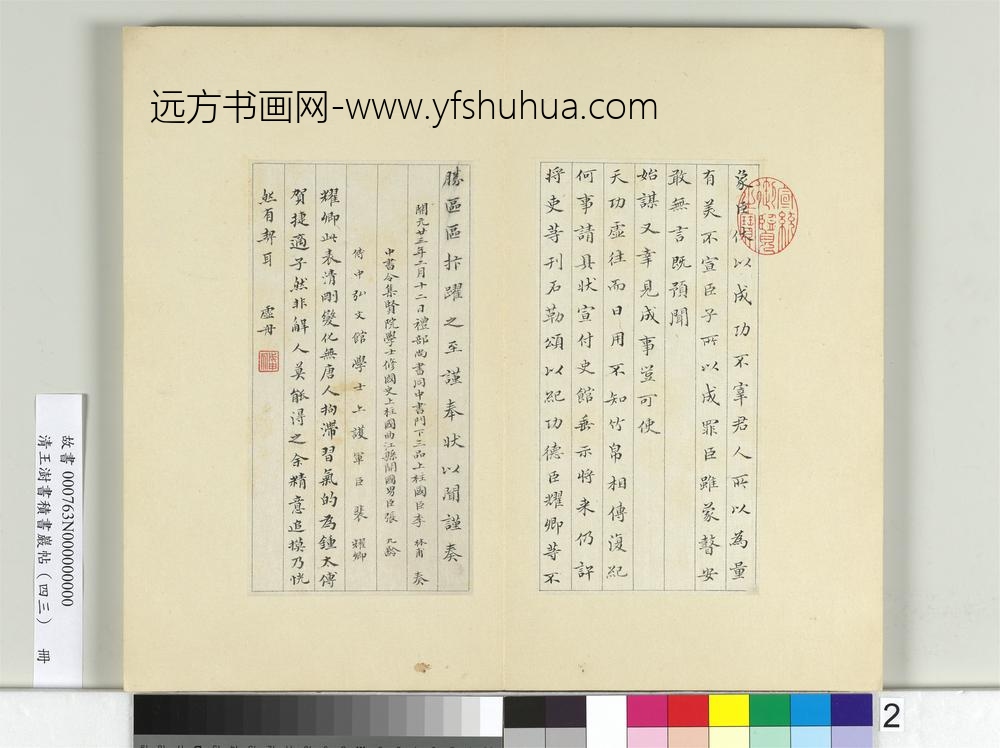 远方书画网-www.yfshuhua.com
象臣伏以成功不宰君人所以為量
有美不宣臣子所以成罪臣雖蒙瞽安
敢無言既預聞
始謀又幸見成事豈可使
天功虛往而日用不知竹帛相傳復紀
何事請具狀宣付史館垂示將来仍許
將吏等刊石勒頌以紀功德臣耀卿等不
勝區區抃躍之至謹奉状以聞謹奏
開元廿三年二月十二日禮部尚書同中書門下三品上柱國臣李林甫奏
中書令集賢院學士修國史上柱國曲江縣開國男臣張九齡
侍中弘文館學士上護軍臣裴耀卿
耀卿此表清剛變化無唐人拘滯習氣的為鍾太傅
賀捷適子然非解人莫能得之余精意追摸乃恍
然有契耳 虛舟
宣統御覽之寶
故書 000763N000000000
清王澍書積書巖帖（四三） 冊
2